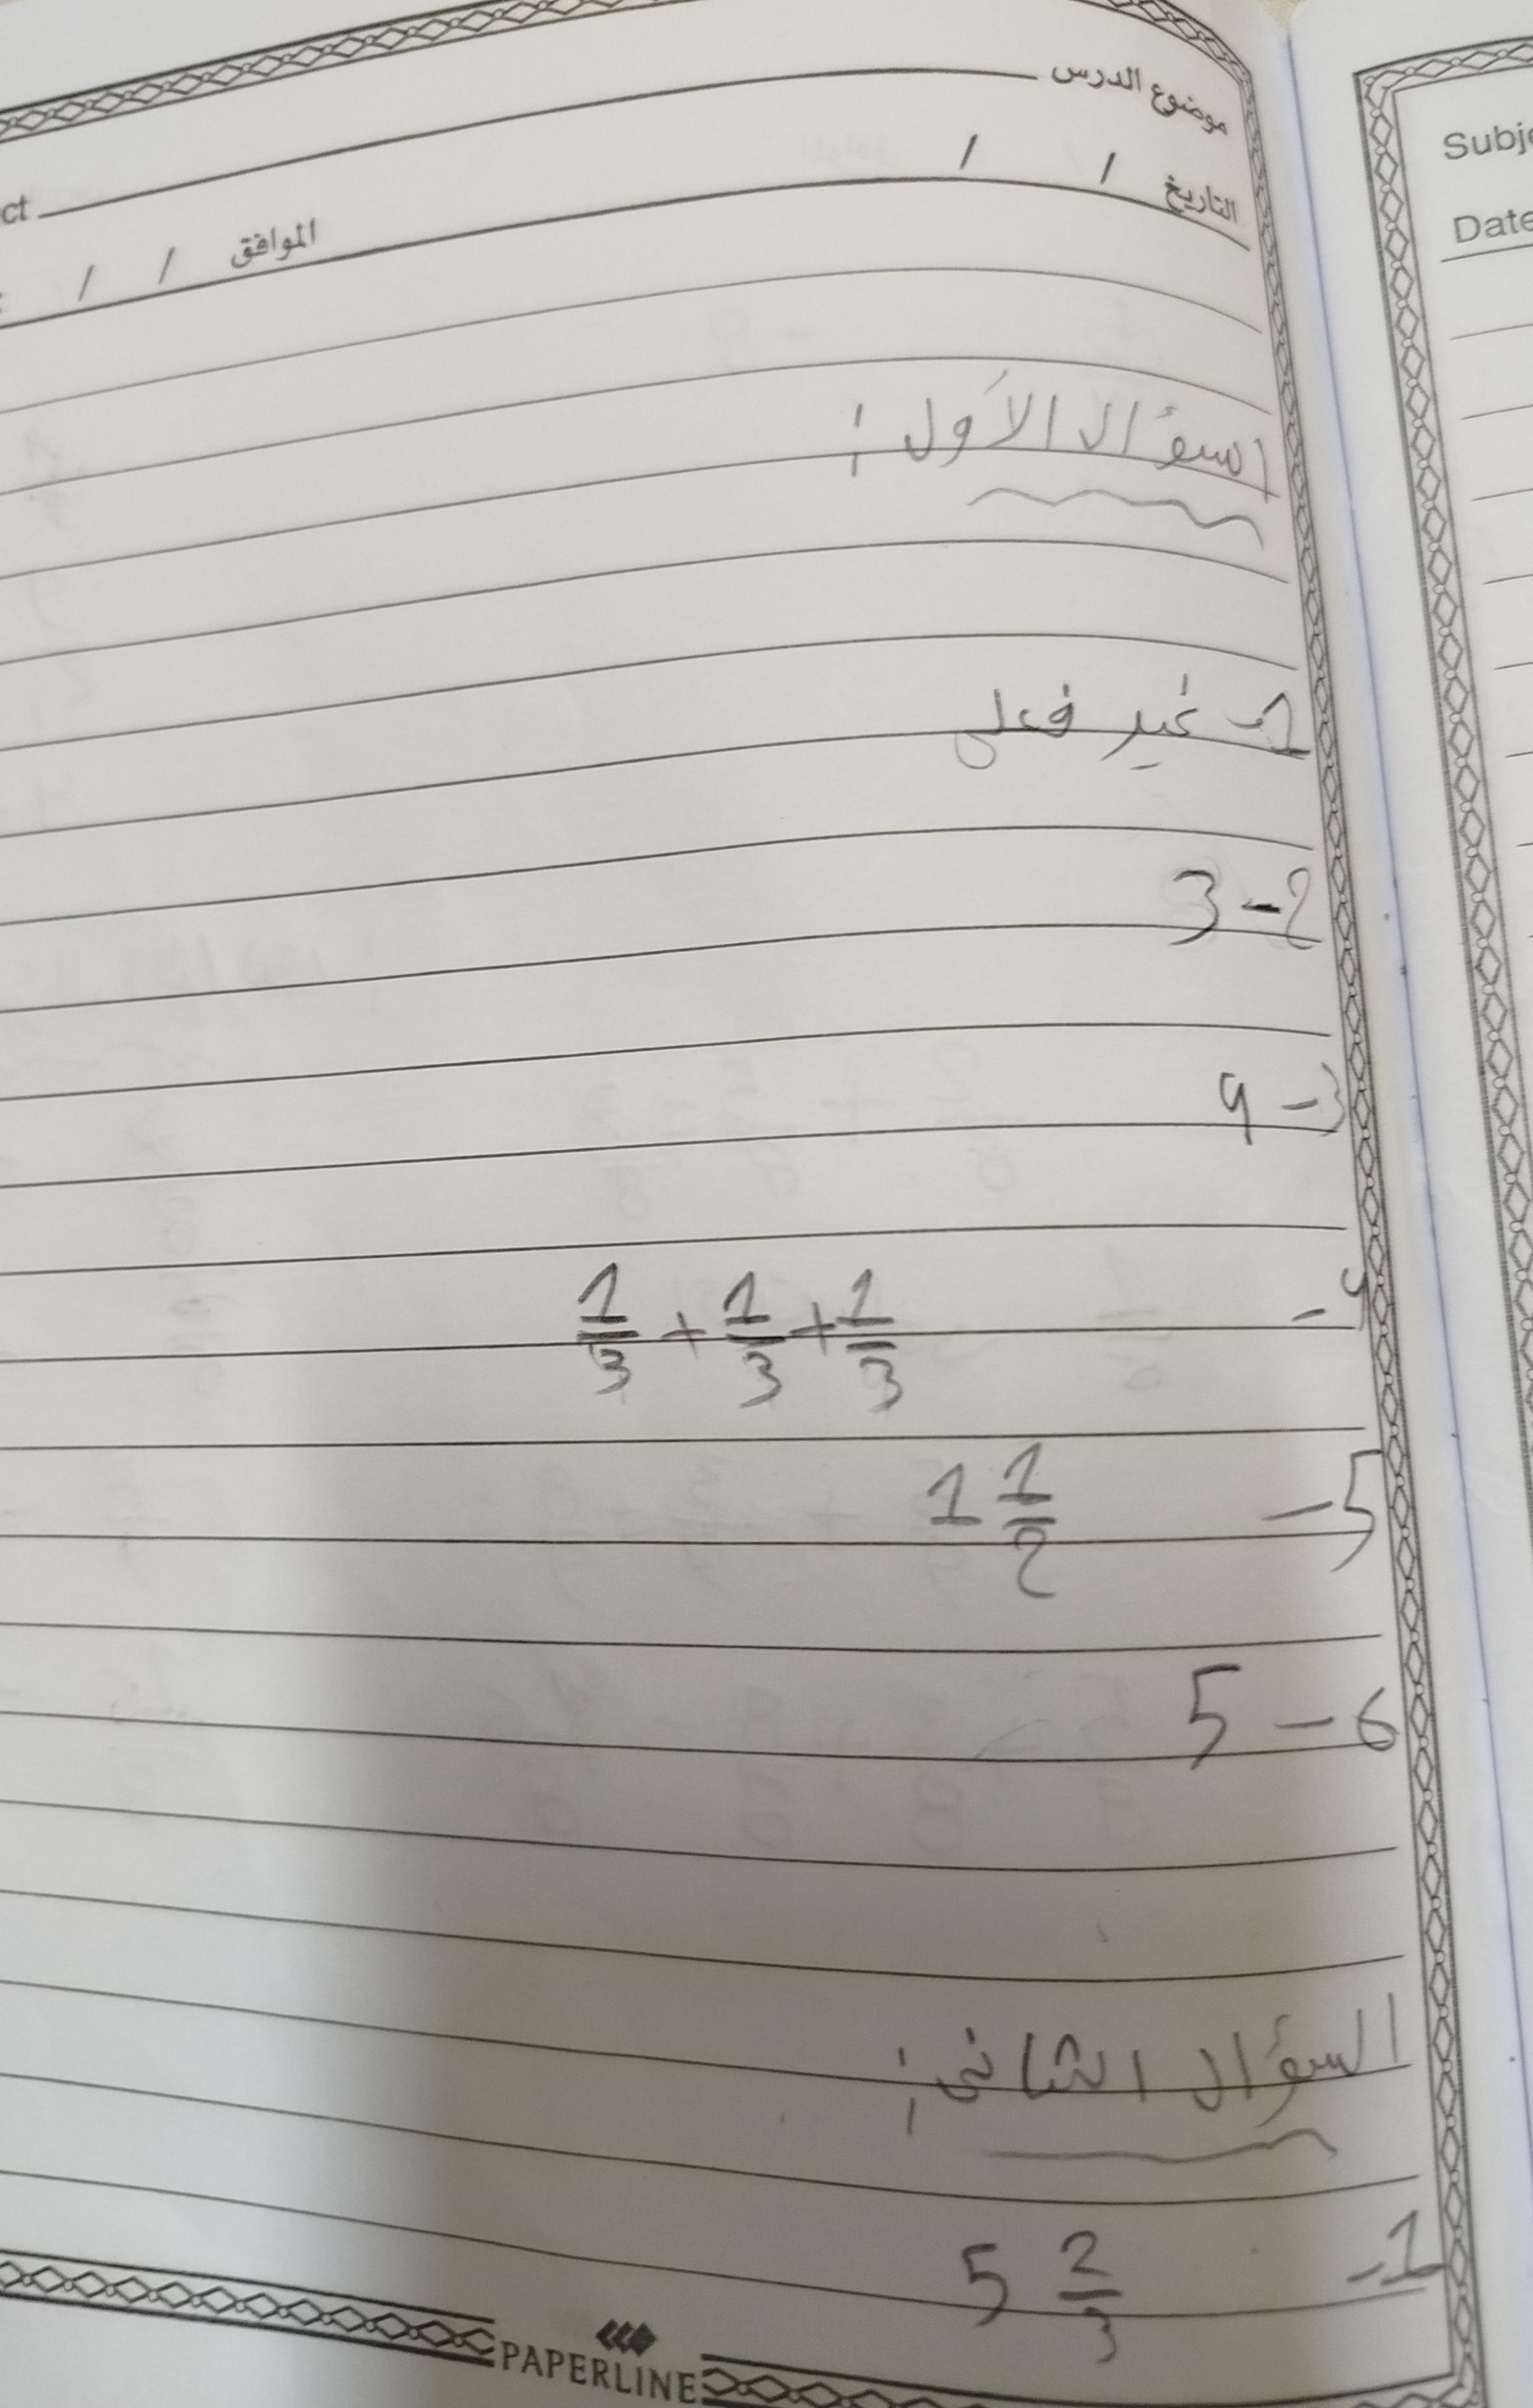 موضوع الدرس
ct
التاريخ / /
الموافق / /
Subje
Date
اسؤال الأول :
1- غير فعلى
2- 3
3- 9
4- 1/3 + 1/3 + 1/3
5- 1 1/2
6- 5
السؤال الثانى :
1- 5 2/3
PAPERLINE